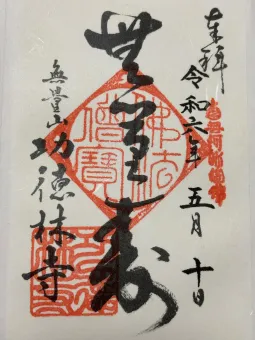 奉拝
令和六年五月十日
無量壽
佛法僧寶
無量山
功徳林寺